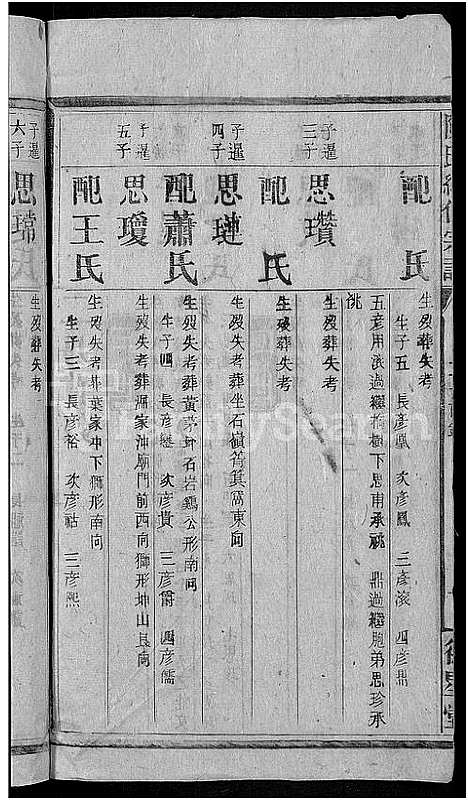 配 氏
生歿葬失考
生子五 長彥鳳 次彥鳳 三彥滚 四彥鼎
五彥用 滚過繼橋樹下思甫承祧 鼎過繼胞弟思珍承
祧
子暹
三子
思瓚
生歿葬失考
配 氏
生歿葬失考
子暹
四子
思璉
生歿失考葬坐石嶺筲箕窩東向
配蕭氏
生歿失考葬黃茅坤石岩鷄公形南向
生子四 長彥繼 次彥貴 三彥爵 四彥儒
子暹
五子
思瓊
生歿失考葬馮家沖廟門前西向獅形坤山艮向
配王氏
生歿失考葬葉家冲下獅形南向
生子三 長彥裕 次彥祜 三彥熙
子暹
六子
思瑞
生歿葬失考
FamilySearch